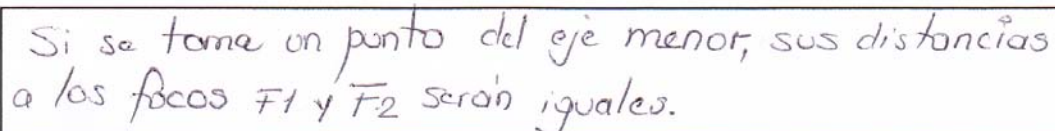 Si se toma un punto del eje menor, sus distancias
a los focos F1 y F2 serán iguales.